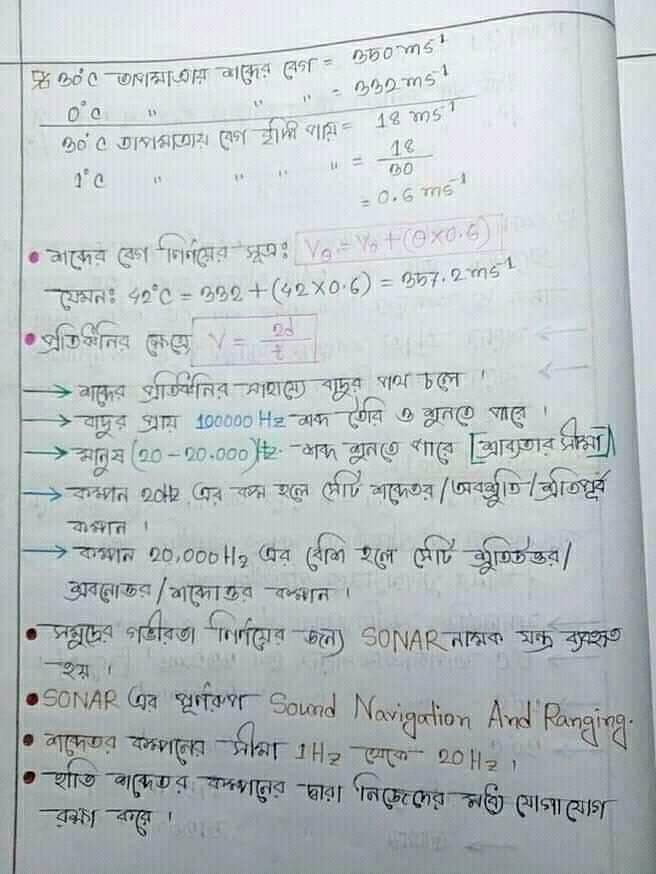 ※ 30°C তাপমাত্রায় শব্দের বেগ = 350 ms⁻¹
0°C " " " = 332 ms⁻¹
30°C তাপমাত্রায় বেগ বৃদ্ধি পায় = 18 ms⁻¹
1°C " " " " = 18/30
= 0.6 ms⁻¹
• শব্দের বেগ নির্ণয়ের সূত্রঃ Vθ = V₀ + (θ×0.6)
যেমনঃ 42°C = 332 + (42×0.6) = 357.2 ms⁻¹
• প্রতিধ্বনির ক্ষেত্রে V = 2d/t
→ শব্দের প্রতিধ্বনির সাহায্যে বাদুর পথ চলে ।
→ বাদুর প্রায় 100000 Hz শব্দ তৈরি ও শুনতে পারে ।
→ মানুষ (20 - 20.000) Hz. শব্দ শুনতে পারে [শ্রাব্যতার সীমা]
→ কম্পন 20Hz এর কম হলে সেটি শব্দেতর/অবশ্রুতি/শ্রুতিপূর্ব
কম্পন ।
→ কম্পন 20,000Hz এর বেশি হলে সেটি শ্রুতিউত্তর/
শ্রবনোত্তর/শব্দোত্তর কম্পন ।
• সমুদ্রের গভীরতা নির্ণয়ের জন্যে SONAR নামক যন্ত্র ব্যবহৃত
হয় ।
• SONAR এর পূর্ণরূপ Sound Navigation And Ranging.
• শব্দেতর কম্পনের সীমা 1Hz থেকে 20Hz ।
• হাতি শব্দেতর কম্পনের দ্বারা নিজেদের মধ্যে যোগাযোগ
রক্ষা করে ।